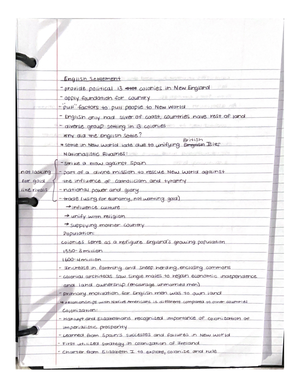 English Settlement
- provide political is colonies in New England
- apply foundation for country
- pull factors to pull people to New World
- English only had sliver of coast, countries have rest of land
- diverse group settling in 13 colonies
Why did the English settle?
British
- time in New World wide due to unifying English Isles
Nationalistic Rivalries:
- strike a blow against Spain
- part of a divine mission to rescue New World against
the influence of Catholicism and tyranny
- national power and glory
- trade
→ influence culture
→ unify with religion
→ supplying mother country
Population:
Colonies serve as a refuge for England's growing population
1550-3 million
1600-4 million
- increase in farming and sheep herding, enclosing commons
- colonial architects saw single males to regain economic independence
and land ownership (encourage unmarried men)
- driving motivation for English men was to gain land
- relationships with Native Americans is different compared to other countries
Colonization:
- Monarchs and Elizabethans recognized importance of colonization of
imperialistic prosperity
- Learned from Spain's successes and failures in New World
- First utilized strategy in colonization of Ireland
- Charter from Elizabeth I to explore, colonize and rule